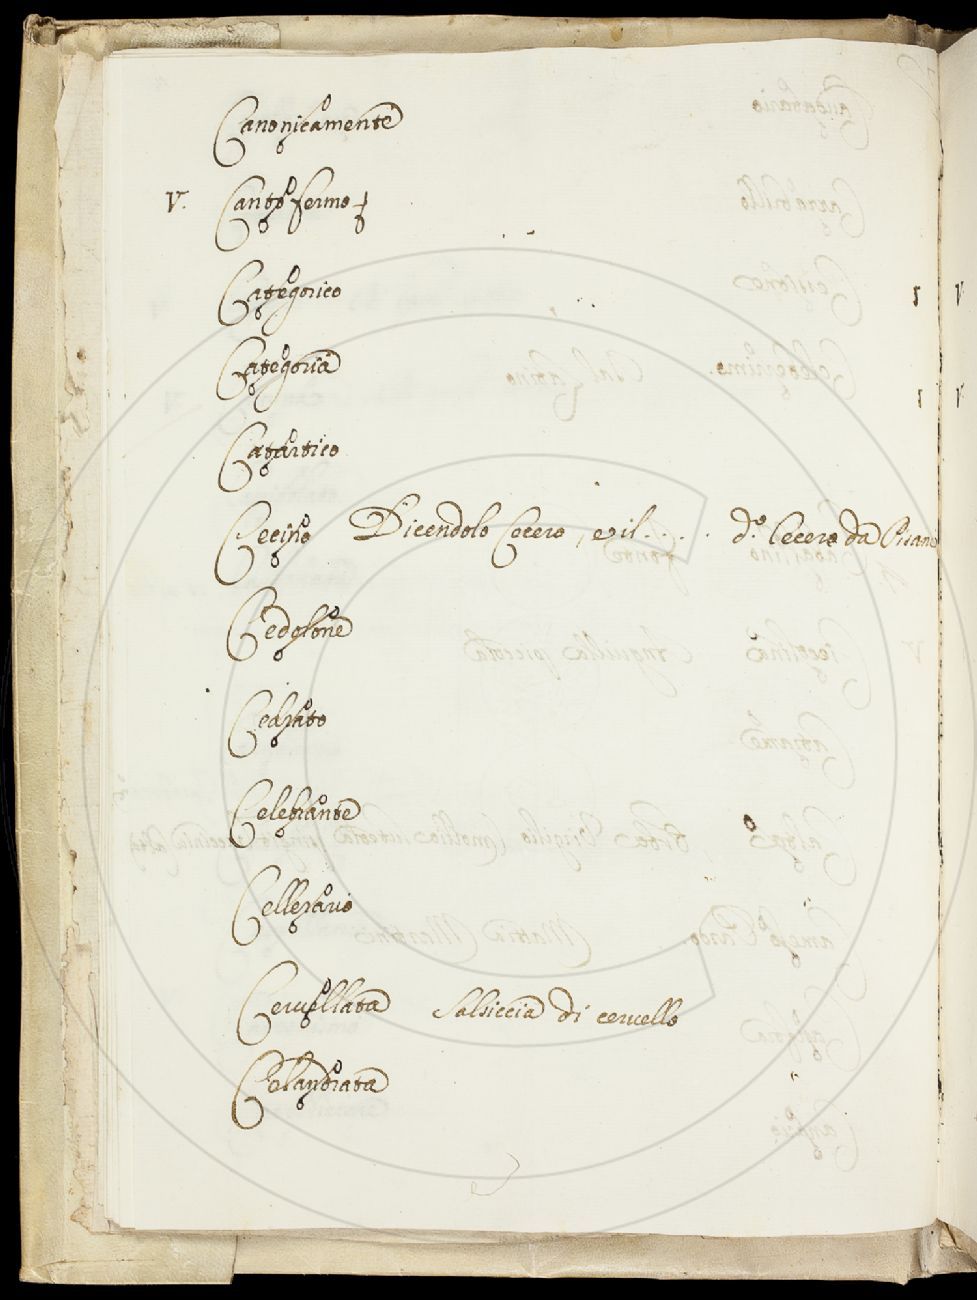 Canonicamente
V. Canto fermo
Categorico
Categoria
Catartico
Cecino Dicendolo Cocero, e il..... d.º Cecero da Pisani
Cedolone
Cedrato
Celebrante
Cellerario
Cervellata Salsiccia di cervello